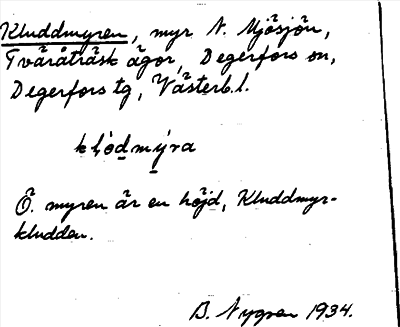 Kluddmyren, myr N. Mjösjön,
Tväråträsk ägor, Degerfors sn,
Degerfors tg, Västerb. l.
Ö. myren är en höjd, Kluddmyr-
kludden.
B. Nygren 1934.